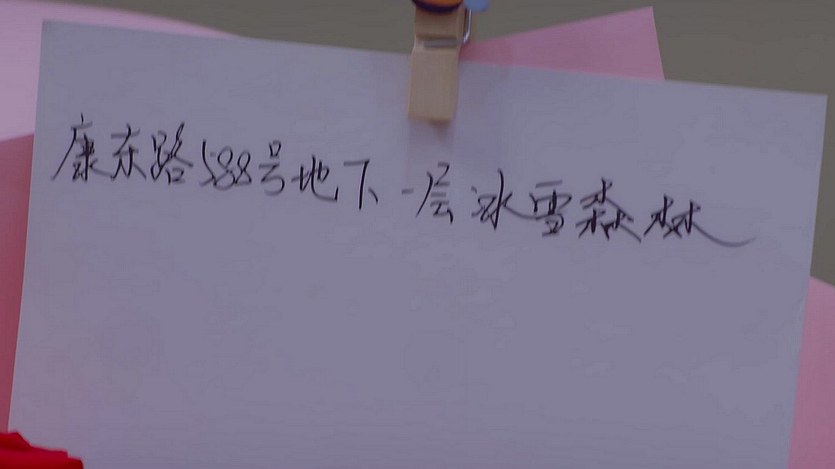 康东路588号地下一层冰雪森林